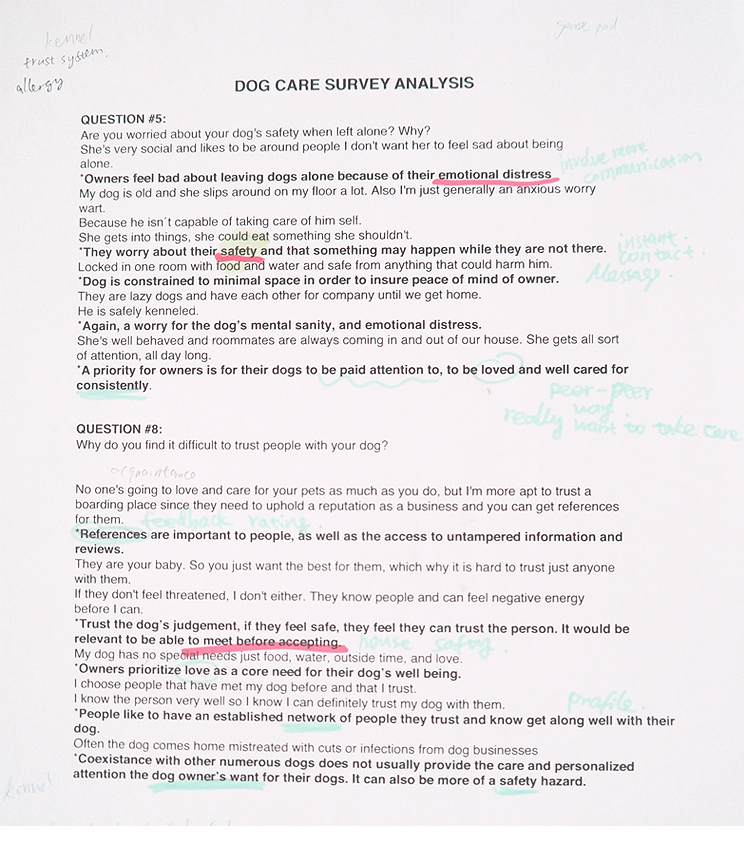 kennel
trust system.
allergy
DOG CARE SURVEY ANALYSIS
QUESTION #5:
Are you worried about your dog's safety when left alone? Why?
She's very social and likes to be around people I don't want her to feel sad about being
alone.
*Owners feel bad about leaving dogs alone because of their emotional distress
involve more
communication
My dog is old and she slips around on my floor a lot. Also I'm just generally an anxious worry
wart.
Because he isn´t capable of taking care of him self.
She gets into things, she could eat something she shouldn't.
*They worry about their safety and that something may happen while they are not there.
instant.
contact.
Message.
Locked in one room with food and water and safe from anything that could harm him.
*Dog is constrained to minimal space in order to insure peace of mind of owner.
They are lazy dogs and have each other for company until we get home.
He is safely kenneled.
*Again, a worry for the dog's mental sanity, and emotional distress.
She's well behaved and roommates are always coming in and out of our house. She gets all sort
of attention, all day long.
*A priority for owners is for their dogs to be paid attention to, to be loved and well cared for
consistently.
peer-peer
way
really want to take care
QUESTION #8:
Why do you find it difficult to trust people with your dog?
No one's going to love and care for your pets as much as you do, but I'm more apt to trust a
boarding place since they need to uphold a reputation as a business and you can get references
for them.
feedback rating.
*References are important to people, as well as the access to untampered information and
reviews.
They are your baby. So you just want the best for them, which why it is hard to trust just anyone
with them.
If they don't feel threatened, I don't either. They know people and can feel negative energy
before I can.
*Trust the dog's judgement, if they feel safe, they feel they can trust the person. It would be
relevant to be able to meet before accepting.
house
My dog has no special needs just food, water, outside time, and love.
*Owners prioritize love as a core need for their dog's well being.
I choose people that have met my dog before and that I trust.
I know the person very well so I know I can definitely trust my dog with them.
profile.
*People like to have an established network of people they trust and know get along well with their
dog.
Often the dog comes home mistreated with cuts or infections from dog businesses
*Coexistance with other numerous dogs does not usually provide the care and personalized
attention the dog owner's want for their dogs. It can also be more of a safety hazard.
kennel